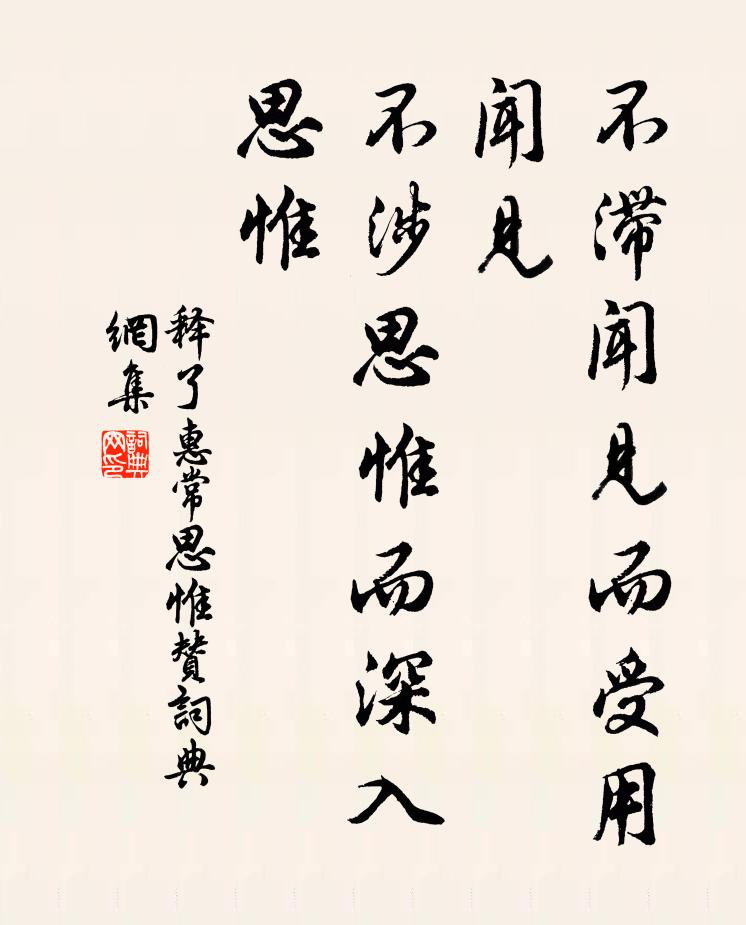 不滞闻见而受用
闻见
不涉思惟而深入
思惟
释了惠常思惟赞詞典
網集
詞典
网印